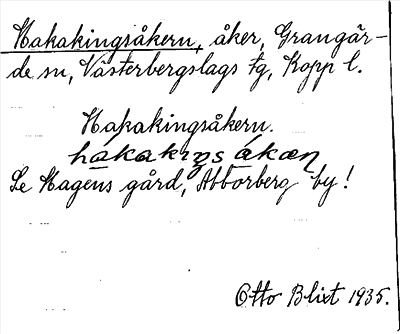 Hakakingsåkern, åker, Grangär-
de sn, Västerbergslags tg, Kopp l.
Hakakingsåkern.
hákakiŋs ákæɳ
Se Hagens gård, Abborberg by!
Otto Blixt 1935.